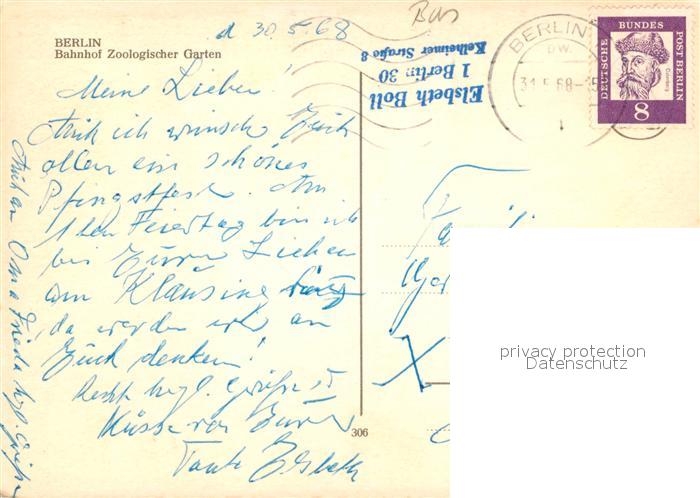 BERLIN
Bahnhof Zoologischer Garten
d 30.5.68
Meine Lieben!
Auch ich wünsche Euch
allen ein schönes
Pfingstfest. Am
1ten Feiertag bin ich
bei Euren Lieben
am Klausing
da werden wir an
Euch denken!
Recht hrzl. Grüße u
Küsse von Eurer
Tante Elsbeth
Auch an Oma Frieda hrzl. Grüße
306
Elsbeth Boll
1 Berlin 30
Kelheimer Straße 8
BERLIN
31.5.68-15
DEUTSCHE BUNDESPOST BERLIN
Gutenberg
8
privacy protection
Datenschutz